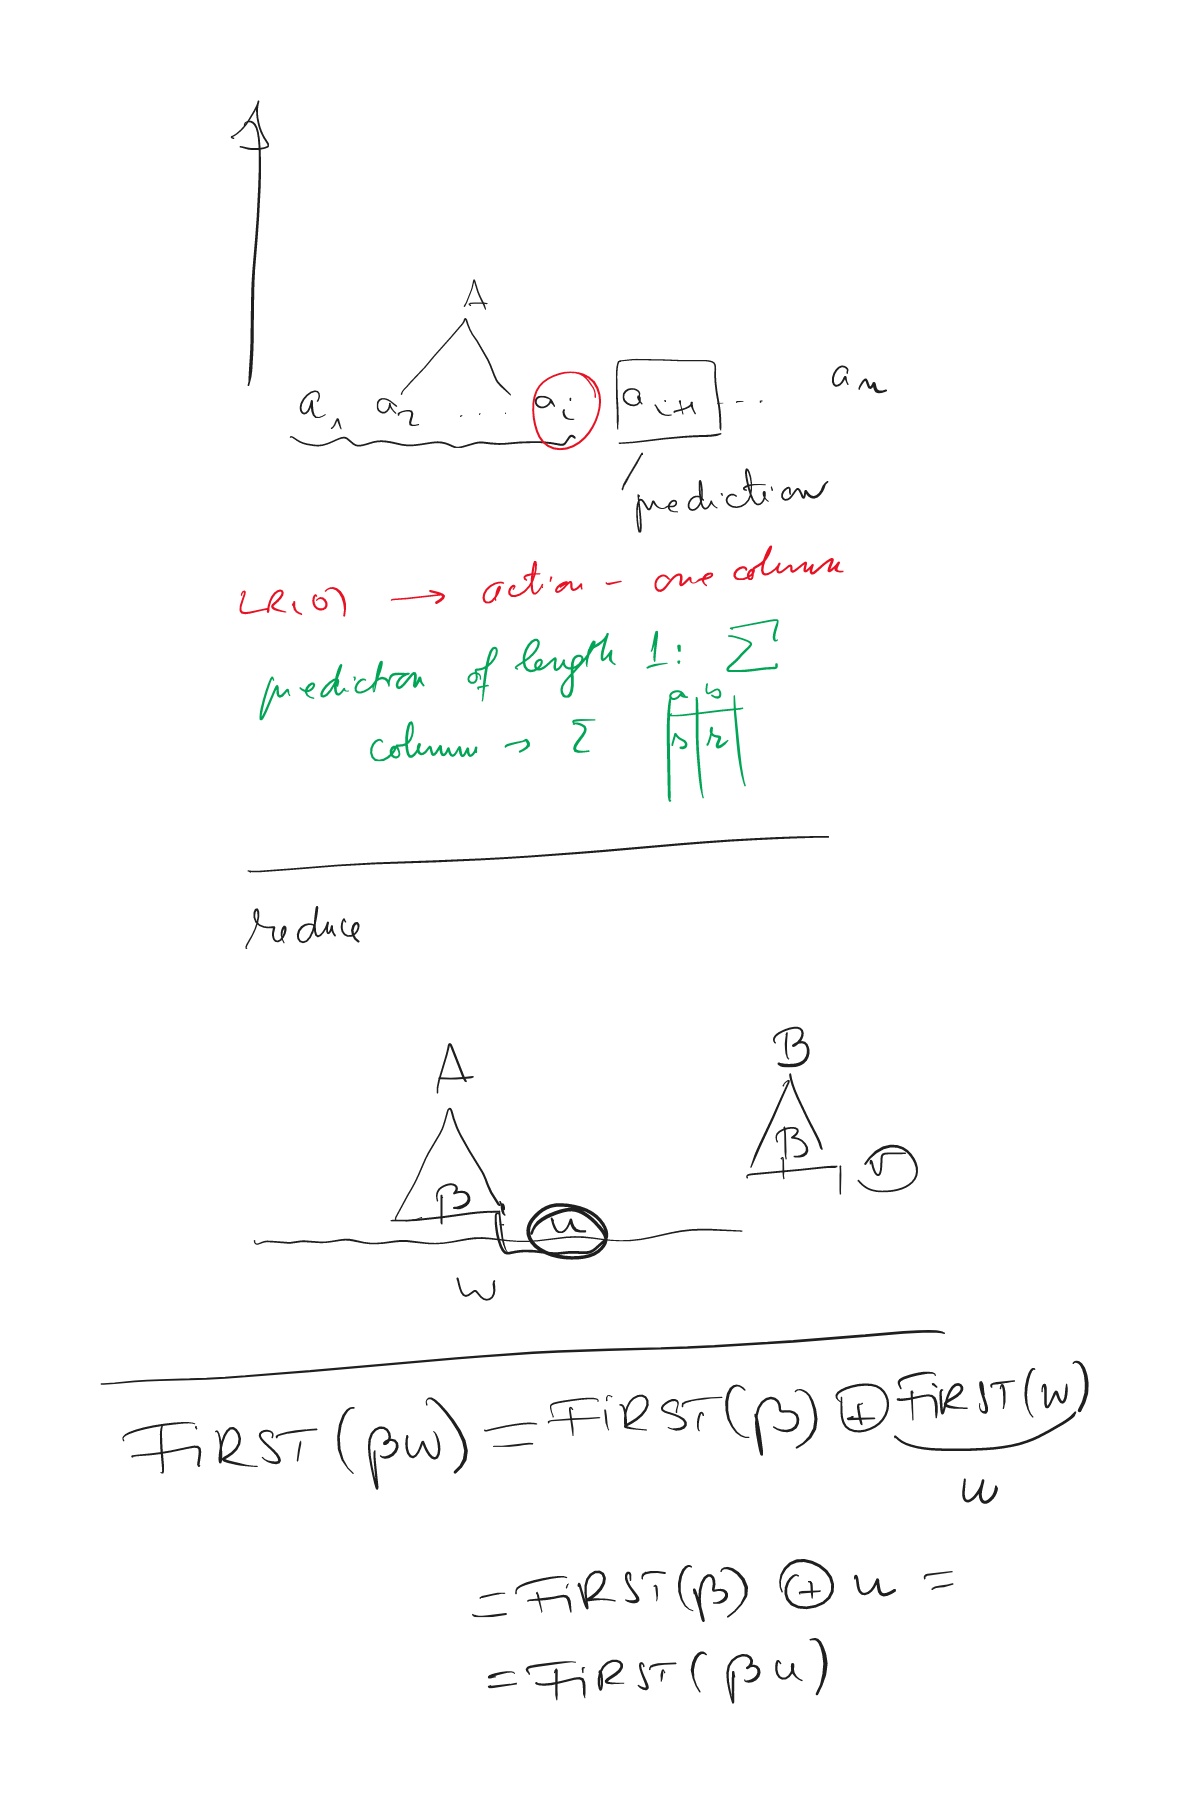 A
a₁ a₂ .... aᵢ aᵢ₊₁ ... aₙ
prediction
LR(0) → action - one column
prediction of length 1: Σ
a b
column → Σ s r
reduce
A B
β β v
u
w
FIRST(βw) = FIRST(β) ⊕ FIRST(w)
u
= FIRST(β) ⊕ u =
= FIRST(βu)